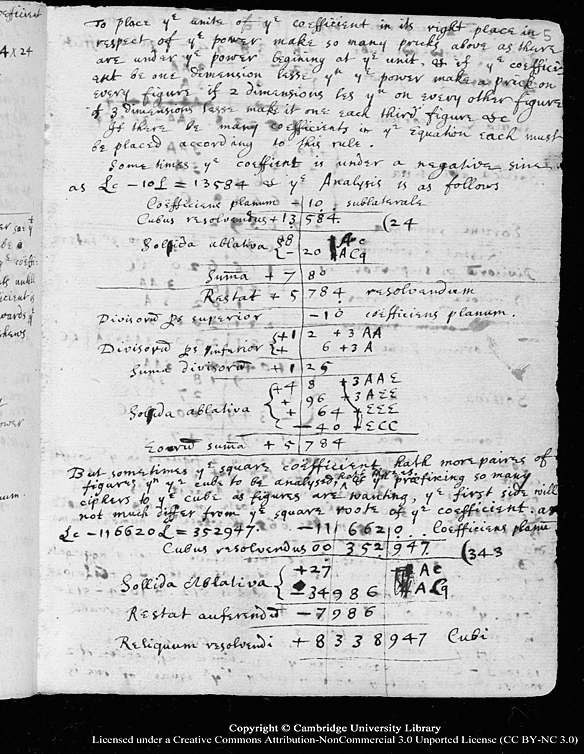 5
To place yᵉ units of yᵉ coefficient in its right place in
respect of yᵉ power make so many pricks above as there
are under yᵉ power begining at yᵉ unit, & if yᵉ coefficient
ent be one demension lesse yⁿ yᵉ power make a prick on
every figure if 2 dimensions les yⁿ on every other figure
if 3 dimensions lesse make it one each third figure &c
If there be many coefficients in yᵉ Equation each must
be placed according to this rule.
Sometimes yᵉ coeffient is under a negative sine
as Lc -10L = 13584 & yᵉ Analysis is as follows
Coefficiens planum - 10 sublaterale
Cubus resolvendus + 13 584. (24
Sollida ablativa { +8 Ac
- 20 ACq
Suma + 7 80
Restat + 5 784 resolvendum
Divisorū ps superior -10 coefficiens planum.
Divisorū ps inferior { +1 2 +3AA
+ 6 +3A
Suma divisorū + 1 25
Sollida ablativa { +4 8 +3AAE
+ 96 +3AEE
+ 64 +EEE
- 40 +ECC
Eorū sum̄a + 5 784
But sometimes yᵉ square coefficient hath more paires of
figures yⁿ yᵉ cube to be analysed hath threes. & yⁿ prefixing so many
ciphers to yᵉ cube as figures are wanting, yᵉ first side will
not much differ from yᵉ square roote of yᵉ coefficient. as
Lc - 116620L = 352947. -11 6620. Coefficiens planū
Cubus resolvendus 00 352 947. (343
Sollida Ablativa { +27 Ac
-34986 ACq
Restat auferendū -7986
Reliquum resolvendi + 8338947 Cubi
4 × 24